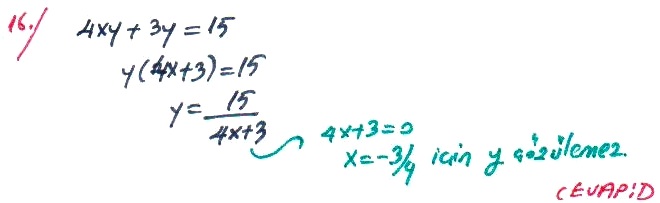 16.) 4xy + 3y = 15
y(4x+3) = 15
y = 15/(4x+3)
4x+3=0
x=-3/4 için y çözülemez.
CEVAP:D